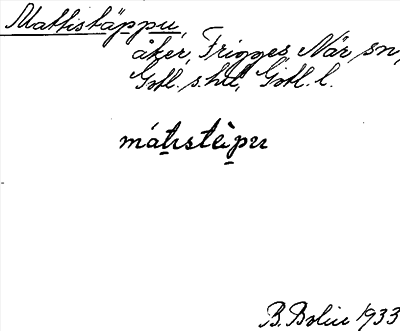 Mattistäppu,
åker, Frigges, När sn,
Gotl. s. hd, Gotl. l.
mátistèpu
B. Bolin 1933